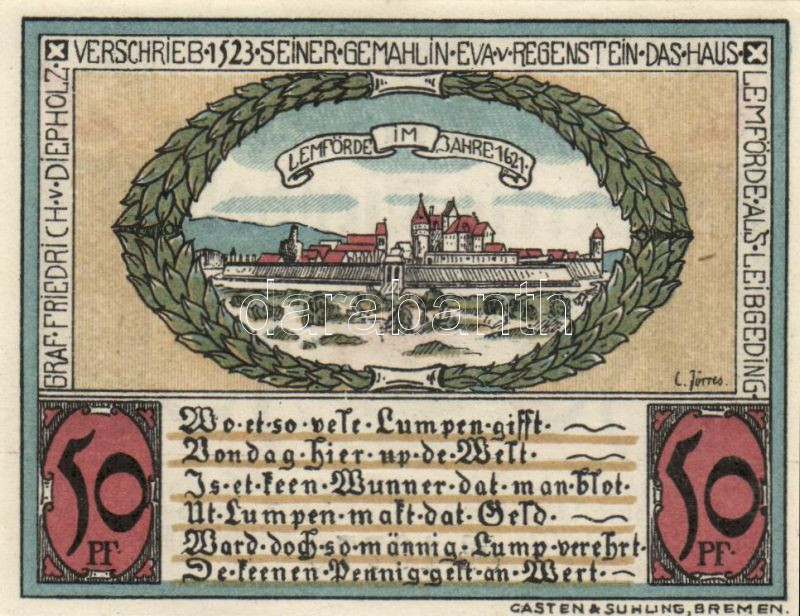 GRAF·FRIEDRICH·V·DIEPHOLZ·
VERSCHRIEB·1523·SEINER·GEMAHLIN·EVA·V·REGENSTEIN·DAS·HAUS·
LEMFÖRDE·ALS·LEIBGEDING·
LEMFÖRDE IM JAHRE·1621·
C. Jörres.
Wo·et·so·vele·Lumpen·gifft·
Vondag·hier·up·de·Welt·
Is·et·keen·Wunner·dat·man·blot·
Ut·Lumpen·makt·dat·Geld·
Ward·doch·so·männig·Lump·verehrt·
De·keenen·Pennig·gelt·an·Wert·
50
Pf·
50
Pf·
GASTEN & SUHLING, BREMEN.
darabanth